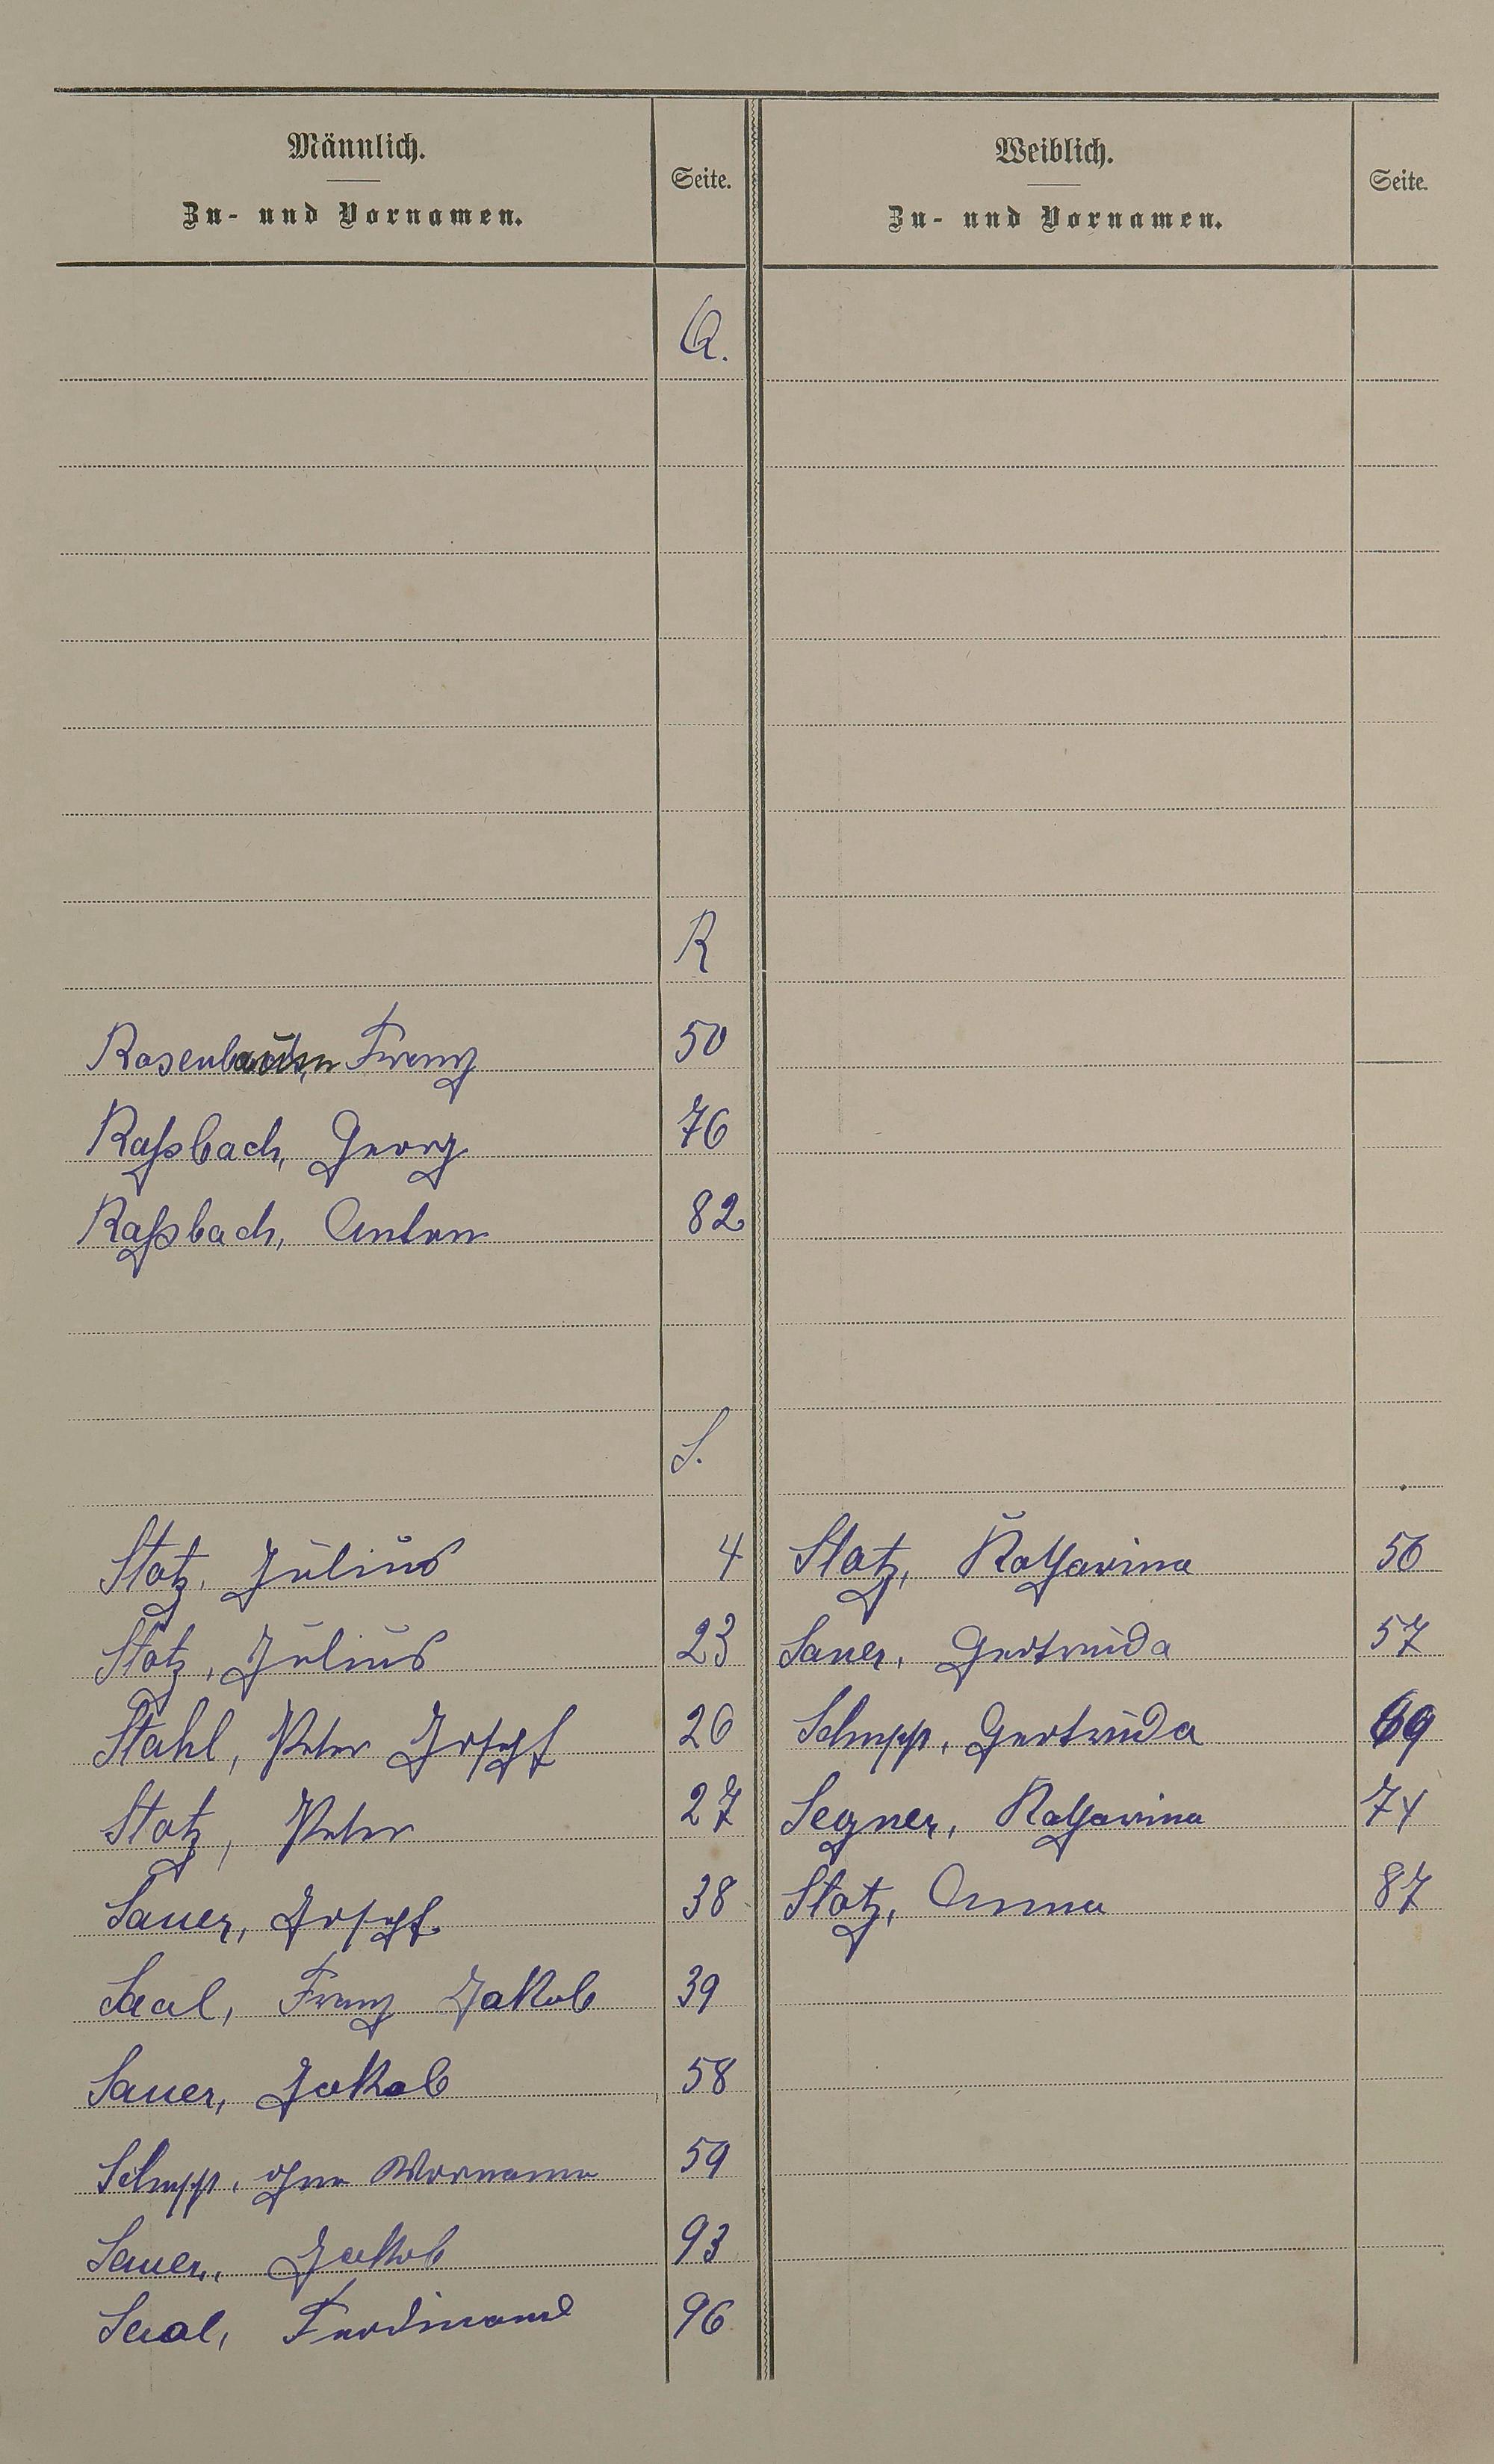 Männlich.
Zu- und Vornamen.
Seite.
Weiblich.
Zu- und Vornamen.
Seite.
Q.
R
Franz 50
Raßbach, Georg 76
Raßbach, Anton 82
S.
Statz, Julius 4
Statz, Julius 23
Stahl, Peter Joseph 26
Statz, Peter 27
Sauer, Joseph 38
Saal, Franz Jakob 39
Sauer, Jakob 58
Schupp, ohne Vorname 59
Sauer, Jakob 93
Saal, Ferdinand 96
Statz, Katharina 56
Sauer, Gertruda 57
Schupp, Gertruda 69
Segner, Katharina 74
Statz, Anna 87